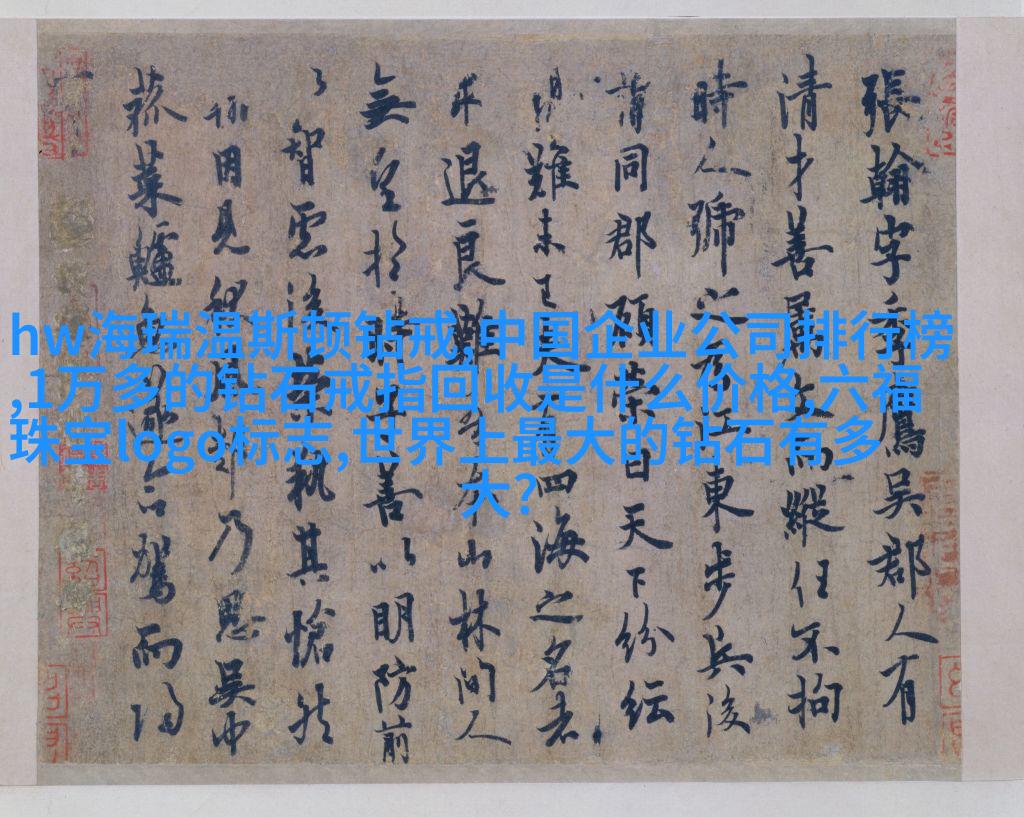 hw海瑞温斯顿钻戒,中国企业公司排行榜
,1万多的钻石戒指回收是什么价格,六福
珠宝logo标志,世界上最大的钻石有多
大?
張翰字季鷹吳郡人有
清才善屬文而縱任不拘
時人號之為江東步兵後
謂同郡顧榮曰天下紛紜
難未已夫有四海之名者
求退良難吾本山林間人
無望於時善以明防前
以智慮後榮執其愴然
因見秋風起乃思吳中
菰菜鱸魚遂命駕而歸